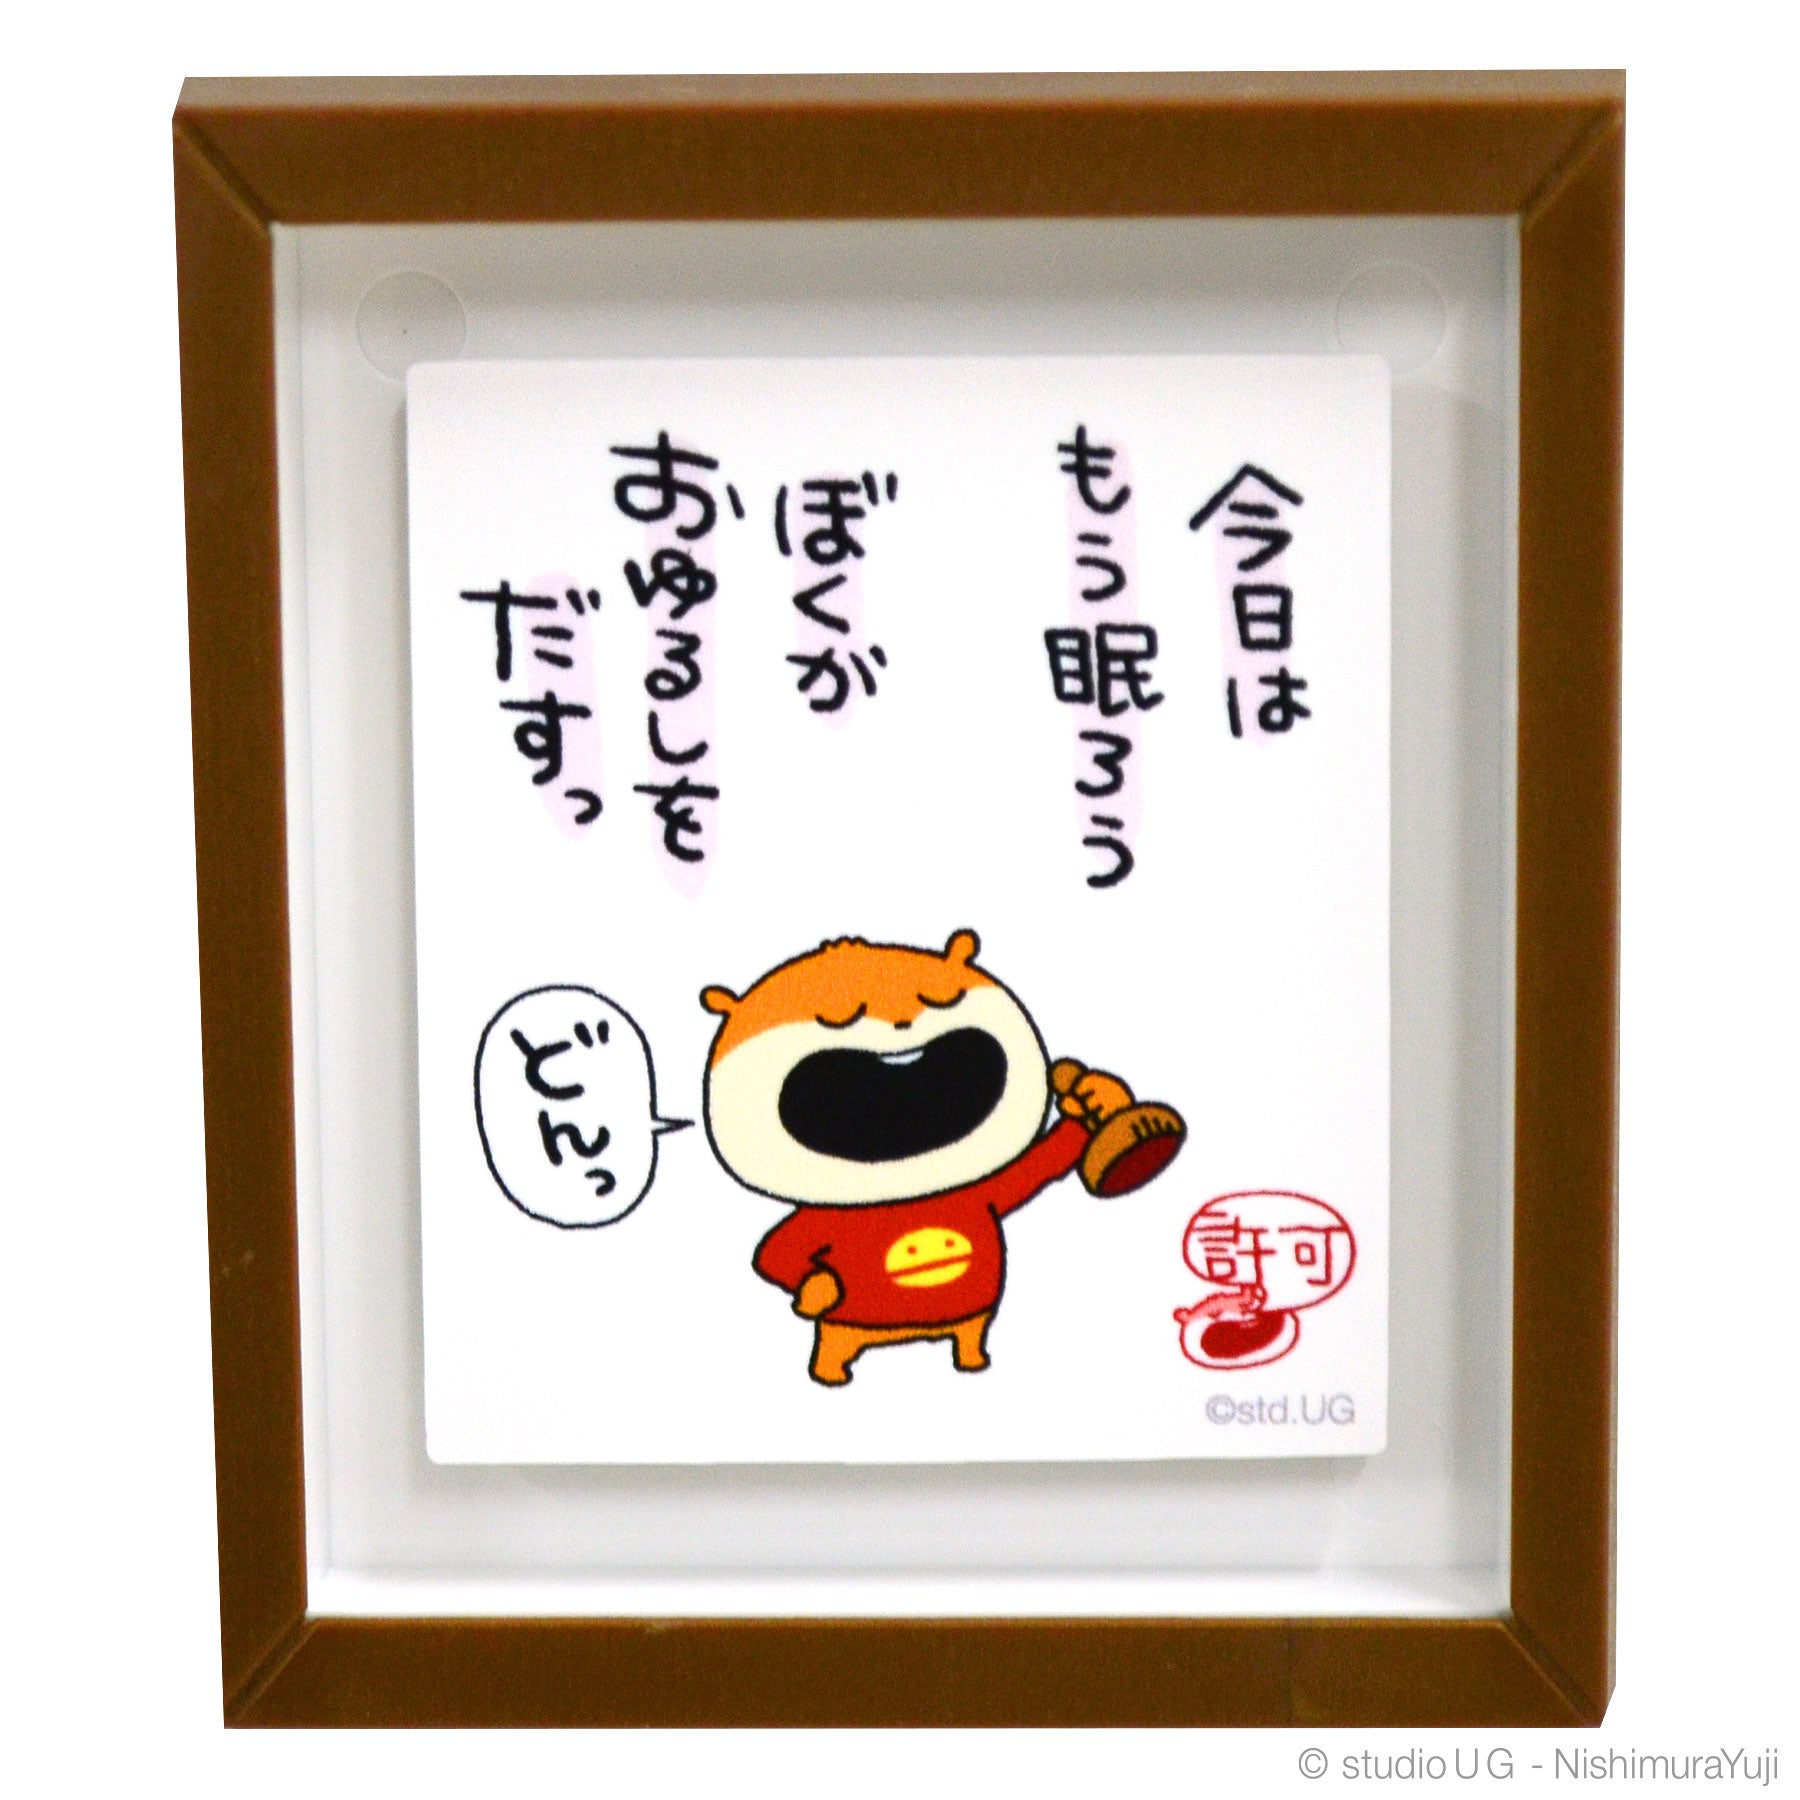 今日は
もう眠ろう
ぼくが
おゆるしを
だすっ
どんっ
許可
©std.UG
© studio U G - NishimuraYuji